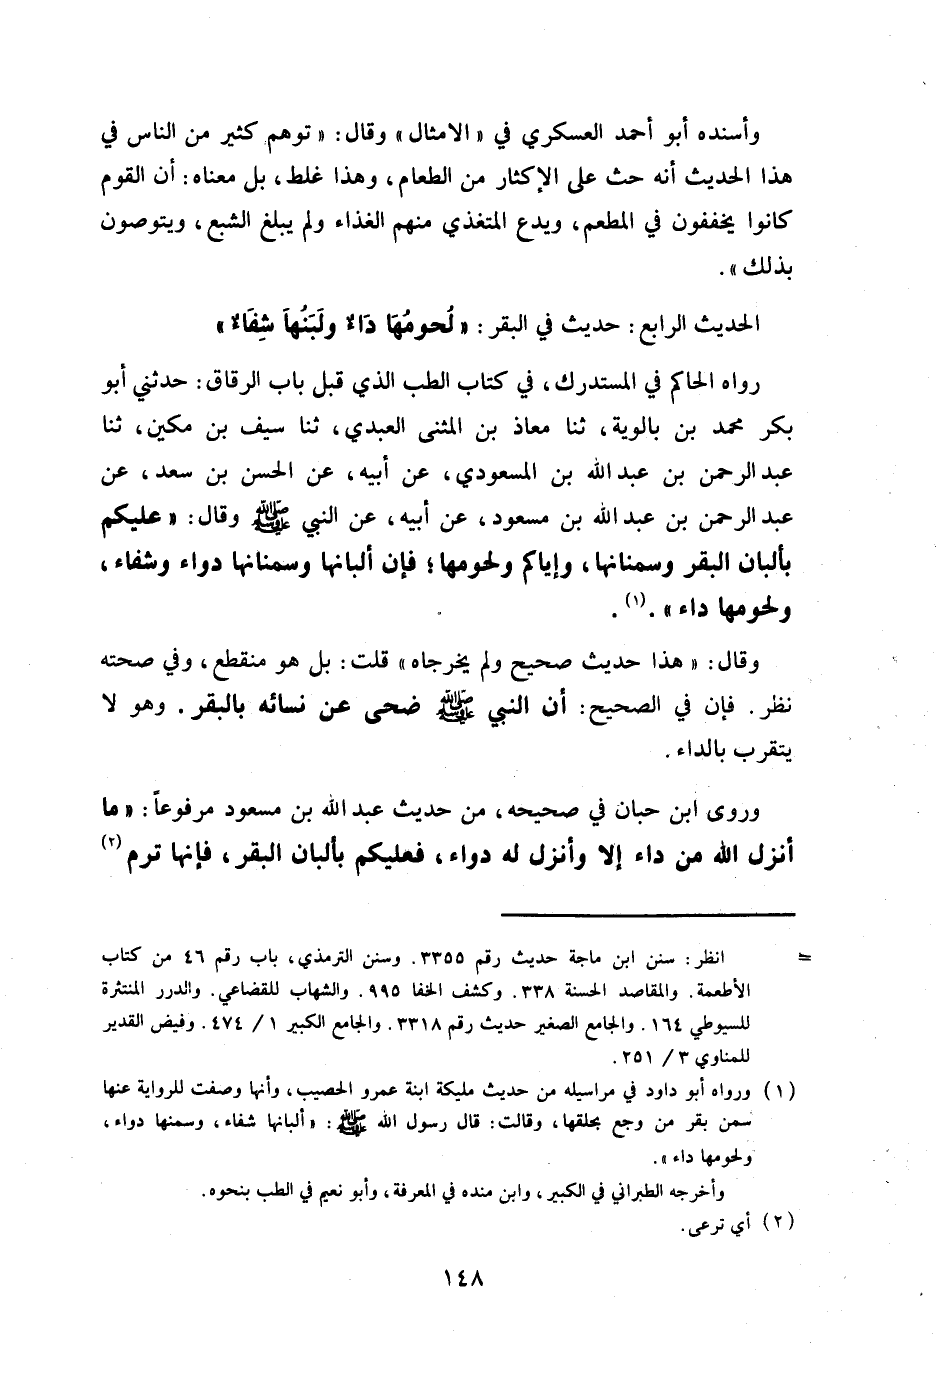 وأسنده أبو أحمد العسكري في « الامثال » وقال : « توهم كثير من الناس في
هذا الحديث أنه حث على الإكثار من الطعام ، وهذا غلط ، بل معناه : أن القوم
كانوا يخففون في المطعم ، ويدع المتغذي منهم الغذاء ولم يبلغ الشبع ، ويتوصون
بذلك » .
الحديث الرابع : حديث في البقر : « لُحومُهَا دَاءٌ ولَبَنُهاَ شِفَاءٌ »
رواه الحاكم في المستدرك ، في كتاب الطب الذي قبل باب الرقاق : حدثني أبو
بكر محمد بن بالوية ، ثنا معاذ بن المثنى العبدي ، ثنا سيف بن مكين ، ثنا
عبد الرحمن بن عبد الله بن المسعودي ، عن أبيه ، عن الحسن بن سعد ، عن
عبد الرحمن بن عبد الله بن مسعود ، عن أبيه ، عن النبي ﷺ وقال : « عليكم
بألبان البقر وسمنانها ، وإياكم ولحومها ؛ فإن ألبانها وسمنانها دواء وشفاء ،
ولحومها داء » . (١) .
وقال : « هذا حديث صحيح ولم يخرجاه » قلت : بل هو منقطع ، وفي صحته
نظر . فإن في الصحيح : أن النبي ﷺ ضحى عن نسائه بالبقر . وهو لا
يتقرب بالداء .
وروى ابن حبان في صحيحه ، من حديث عبد الله بن مسعود مرفوعاً : « ما
أنزل الله من داء إلا وأنزل له دواء ، فعليكم بألبان البقر ، فإنها ترم (٢)
= انظر : سنن ابن ماجة حديث رقم ٣٣٥٥ . وسنن الترمذي ، باب رقم ٤٦ من كتاب
الأطعمة . والمقاصد الحسنة ٣٣٨ . وكشف الخفا ٩٩٥ . والشهاب للقضاعي . والدرر المنتثرة
للسيوطي ١٦٤ . والجامع الصغير حديث رقم ٣٣١٨ . والجامع الكبير ١ / ٤٧٤ . وفيض القدير
للمناوي ٣ / ٢٥١ .
(١) ورواه أبو داود في مراسيله من حديث مليكة ابنة عمرو الخصيب ، وأنها وصفت للرواية عنها
سمن بقر من وجع بحلقها ، وقالت : قال رسول الله ﷺ : « ألبانها شفاء ، وسمنها دواء ،
ولحومها داء » .
وأخرجه الطبراني في الكبير ، وابن منده في المعرفة ، وأبو نعيم في الطب بنحوه .
(٢) أي ترعى .
١٤٨